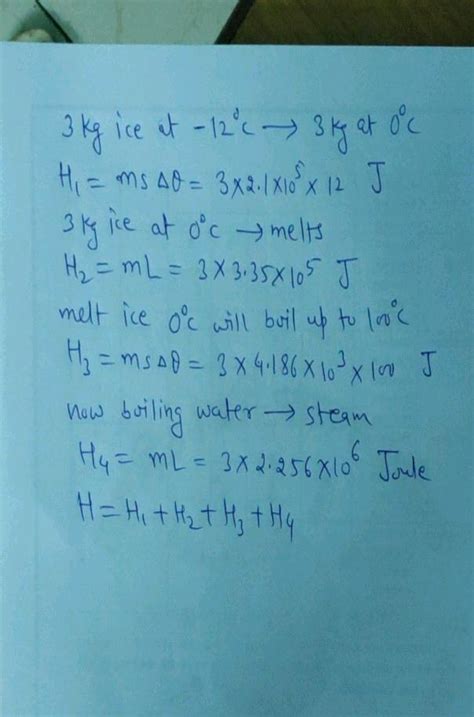 3 kg ice at -12°c → 3 kg at 0°c
H₁ = ms Δθ = 3 × 2.1 × 10⁵ × 12 J
3 kg ice at 0°c → melts
H₂ = mL = 3 × 3.35 × 10⁵ J
melt ice 0°c will boil up to 100°c
H₃ = ms Δθ = 3 × 4.186 × 10³ × 100 J
now boiling water → steam
H₄ = mL = 3 × 2.256 × 10⁶ Joule
H = H₁ + H₂ + H₃ + H₄